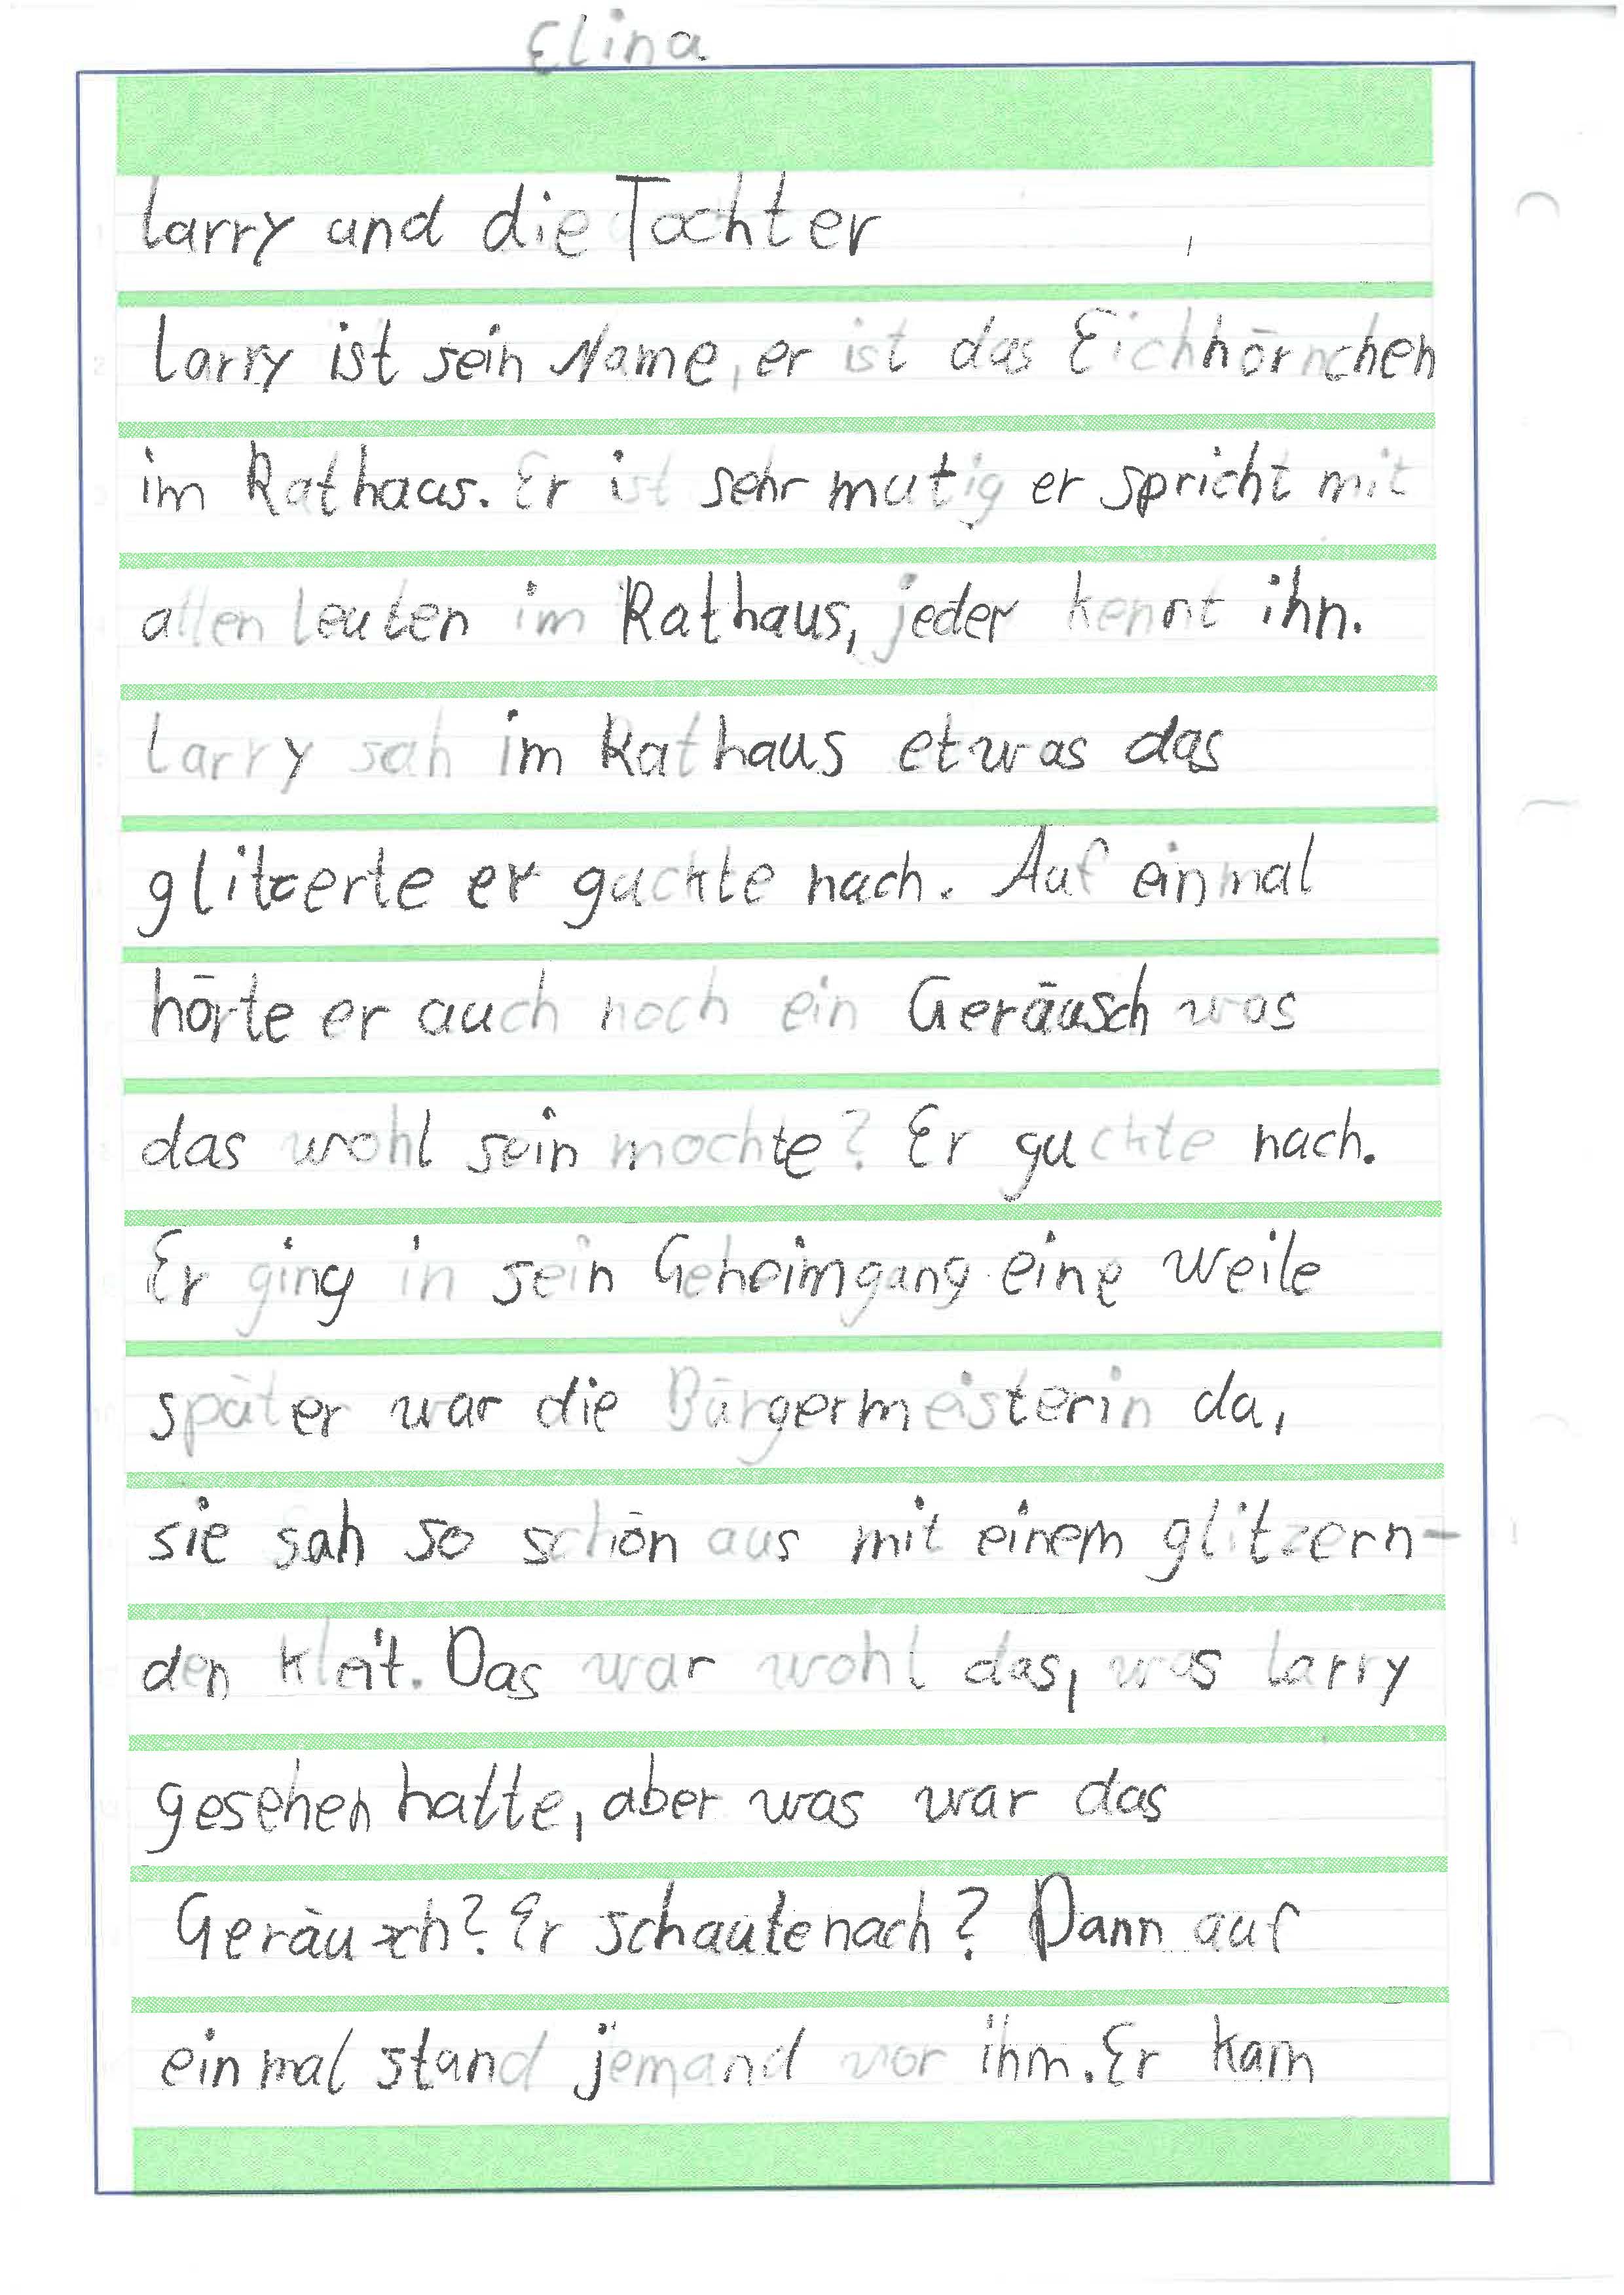 Elina
Larry und die Tochter
Larry ist sein Name, er ist das Eichhörnchen
im Rathaus. Er ist sehr mutig er spricht mit
allen leuten im Rathaus, jeder kennt ihn.
Larry sah im Rathaus etwas das
glitzerte er guckte nach. Auf einmal
hörte er auch noch ein Geräusch was
das wohl sein mochte? Er guckte nach.
Er ging in sein Geheimgang eine weile
später war die Bürgermeisterin da,
sie sah so schön aus mit einem glitzern-
den kleit. Das war wohl das, was Larry
gesehen hatte, aber was war das
Geräusch? Er schaute nach? Dann auf
einmal stand jemand vor ihm. Er kam